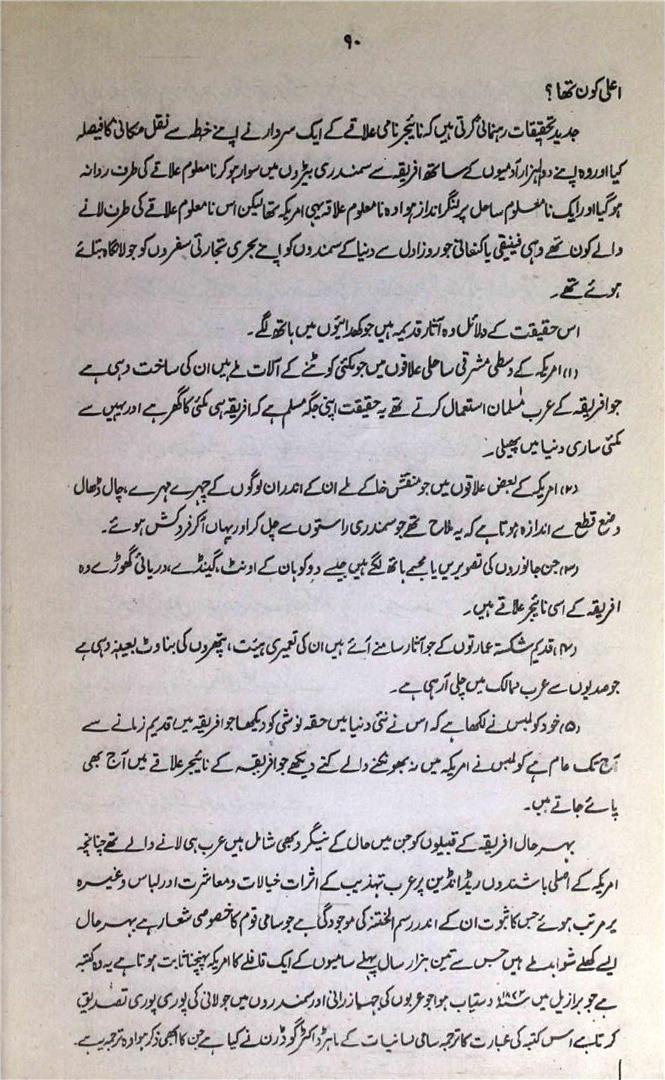 ۹۰
اعلی کون تھا ؟
جدید تحقیقات رہنمائی کرتی ہیں کہ نائیجر نامی علاقے کے ایک سردار نے اپنے خطہ سے نقل مکانی کا فیصلہ
کیا اور وہ اپنے دو ہزار آدمیوں کے ساتھ افریقہ سے سمندری بیڑوں میں سوار ہو کر نا معلوم علاقے کی طرف روانہ
ہو گیا اور ایک نا معلوم ساحل پر لنگر انداز ہوا وہ نا معلوم علاقہ یہی امریکہ تھا لیکن اس نا معلوم علاقے کی طرف لانے
والے کون تھے وہی فینیقی یا کنعانی جو روز اول سے دنیا کے سمندروں کو اپنے بحری تجارتی سفروں کو جولانگاہ بنائے
ہوئے تھے۔
اس حقیقت کے دلائل وہ آثار قدیمہ ہیں جو کھدائیوں میں ہاتھ لگے۔
(۱) امریکہ کے وسطی مشرقی ساحلی علاقوں میں جو مکئی کوٹنے کے آلات ملے ہیں ان کی ساخت وہی ہے
جو افریقہ کے عرب مسلمان استعمال کرتے تھے یہ حقیقت اپنی جگہ مسلم ہے کہ افریقہ ہی مکئی کا گھر ہے اور یہیں سے
مکئی ساری دنیا میں پھیلی۔
(۲) امریکہ کے بعض علاقوں میں جو منقش خاکے ملے ان کے اندر ان لوگوں کے چہرے مہرے، چال ڈھال
وضع قطع سے اندازہ ہوتا ہے کہ یہ ملاح تھے جو سمندری راستوں سے چل کر اور یہاں آکر فروکش ہوئے۔
(۳) جن جانوروں کی تصویریں یا مجسمے ہاتھ لگے ہیں جیسے دو کوہان کے اونٹ، گینڈے، دریائی گھوڑے وہ
افریقہ کے اسی نائیجر علاقے ہیں۔
(۴) قدیم شکستہ عمارتوں کے جو آثار سامنے آئے ہیں ان کی تعمیری ہیئت، پتھروں کی بناوٹ بعینہ وہی ہے
جو صدیوں سے عرب ممالک میں چلی آرہی ہے۔
(۵) خود کولمبس نے لکھا ہے کہ اس نے نئی دنیا میں حقہ نوشی کو دیکھا جو افریقہ میں قدیم زمانے سے
آج تک عام ہے کولمبس نے امریکہ میں نہ بھونکنے والے کتے دیکھے جو افریقہ کے نائیجر علاقے میں آج بھی
پائے جاتے ہیں۔
بہرحال افریقہ کے قبیلوں کو جن میں حال کے نیگرو بھی شامل ہیں عرب ہی لانے والے تھے چنانچہ
امریکہ کے اصلی باشندوں ریڈ انڈین پر عرب تہذیب کے اثرات خیالات و معاشرت اور لباس وغیرہ
پر مرتب ہوئے جس کا ثبوت ان کے اندر رسم الختنہ کی موجودگی ہے جو سامی قوم کا خصوصی شعار ہے بہر حال
ایسے کھلے شواہد ملے ہیں جس سے تین ہزار سال پہلے سامیوں کے ایک قافلے کا امریکہ پہنچنا ثابت ہوتا ہے یہ وہ کتبہ
ہے جو برازیل میں ۱۸۷۲ء دستیاب ہوا جو عربوں کی جہازرانی اور سمندروں میں جولانی کی پوری پوری تصدیق
کرتا ہے اس کتبہ کی عبارت کا ترجمہ سامی لسانیات کے ماہر ڈاکٹر گوڈرن نے کیا ہے جن کا ابھی ذکر ہوا وہ ترجمہ یہ ہے۔